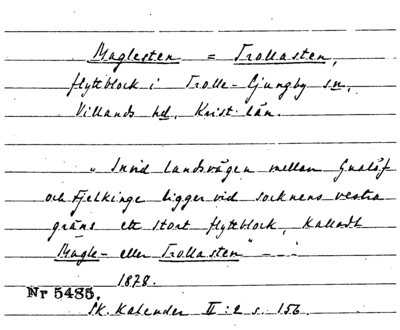 Maglesten = Trollasten,
flyttblock i Trolle-Ljungby sn,
Villands hd, Krist. län.
"Invid landsvägen mellan Gualöf
och Fjelkinge ligger vid socknens vestra
gräns ett stort flyttblock, kalladt
Magle- eller Trollasten" — . —
1878.
Nr 5485.
Sk. Kalender II:2 s. 156.